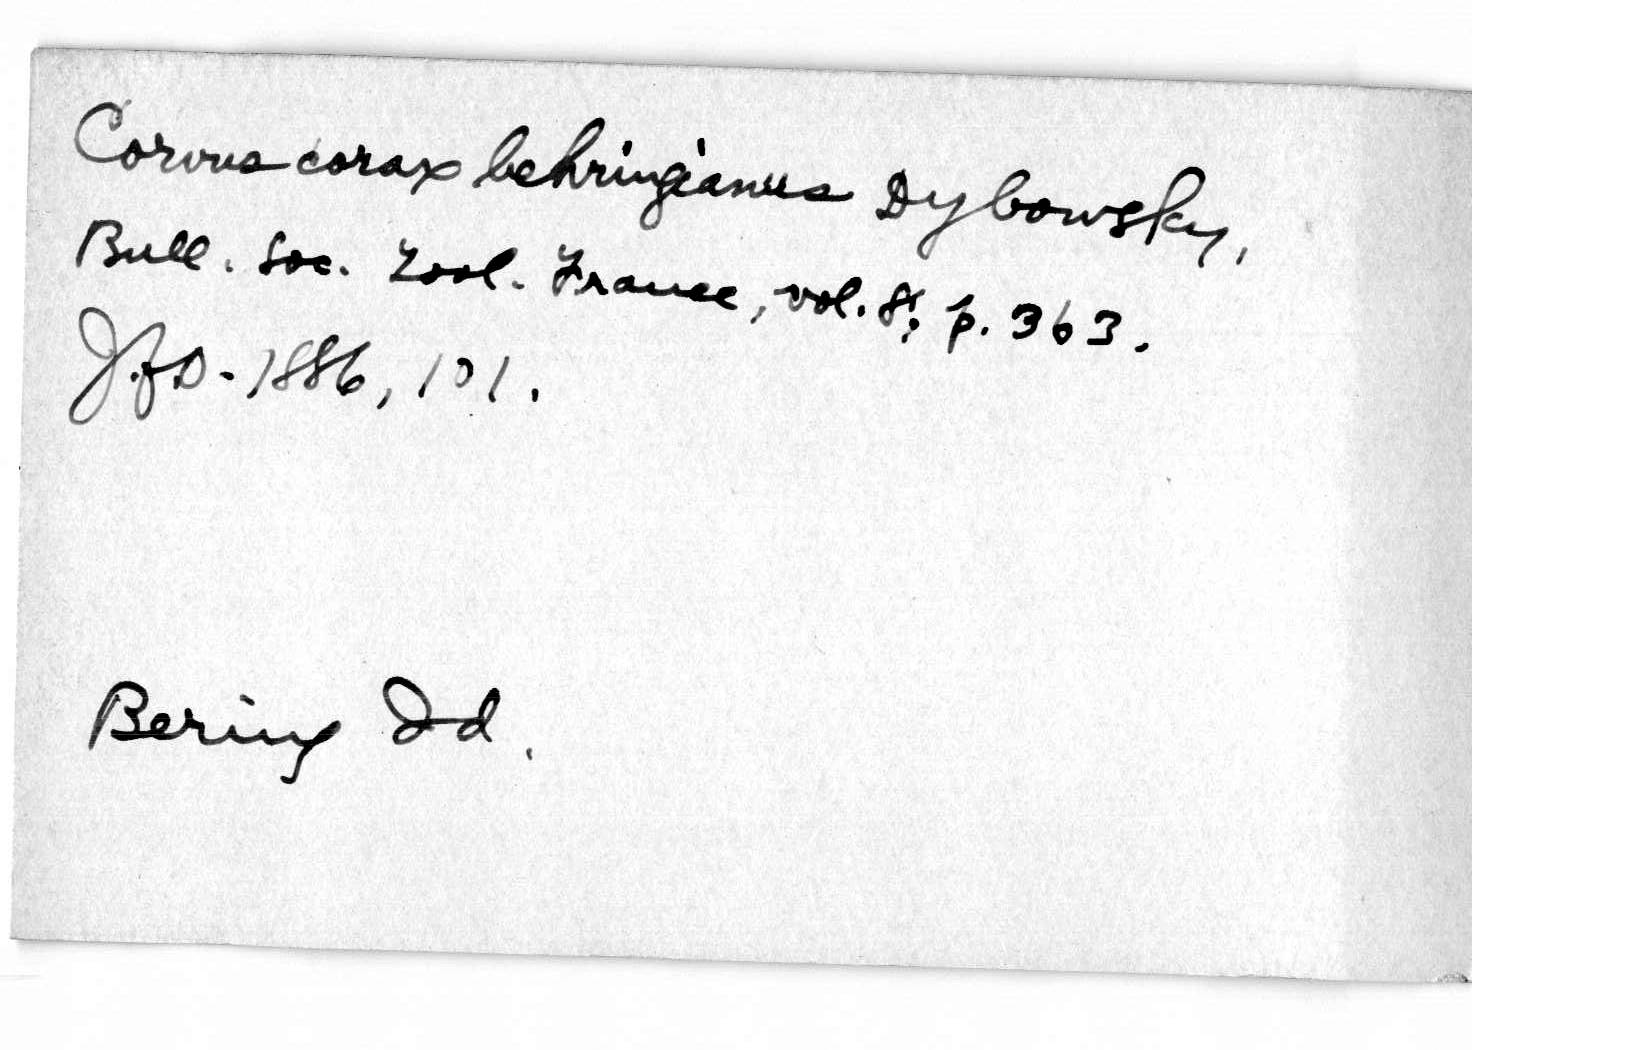 Corvus corax behringianus Dybowsky,
Bull. Soc. Zool. France, vol. 8, p. 363.
J.f.O. - 1886, 101.
Bering Id.